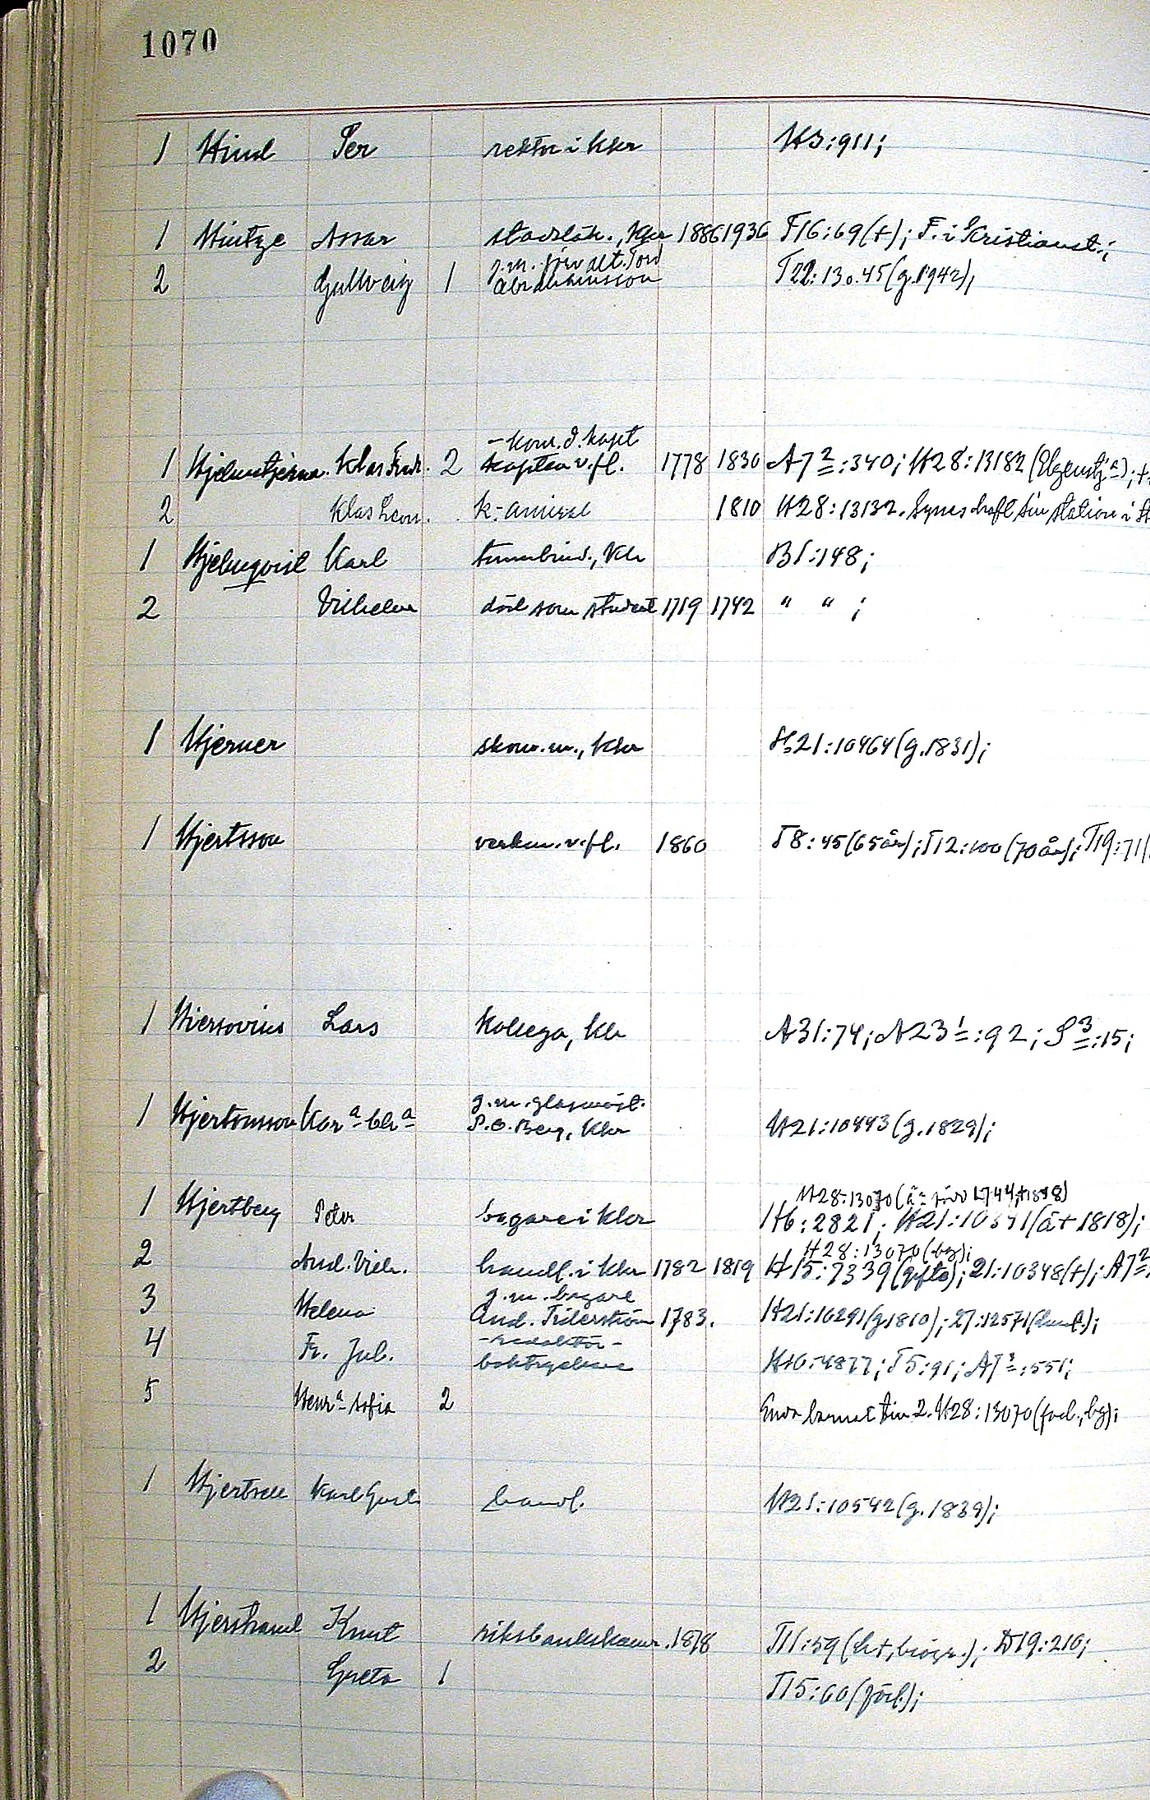 1070
1 Hind Per rektor i Kkr H3:911;
1 Hintze Assar stadsläk., Kkr 1886 1936 T16:69(+); F. i Kristianst.;
2 Gullveig 1 g.m. förvalt. Tord Abrahamsson T22:130.45(g.1942);
- kom. o. kapt
1 Hjelmstjerna Klas Fredr. 2 kapten v. fl. 1778 1830 A7 2:340; H28:13182
2 Klas Leon. k-amiral 1810 H28:13132. Synes haft sin station i
1 Hjelmqvist Karl tunnbind., Kkr B1:148;
2 Vilhelm död som student 1719 1742 " " ;
1 Hjerner skom.m., Kkr H21:10464(g.1831);
1 Hjertsson verkm. v. fl. 1860 T8:45(65år); T12:100(70år); T19:71(
1 Hiersovius Lars Kollega, Kkr A31:74; A23 1:92; S 3:15;
1 Kar a g.m. glasmäst.
P.O. Berg, Kkr H21:10443(g.1829);
1 Hjertberg Peter bagare i Kkr H28:13070
H6:2821; (â+ 1818);
2 And. Vilh. handl. i Kkr 1782 1819 H28:13070(bg);
H15:7339(gifte); 21:10348(+); A7 2
3 Helena g.m. bagare
And. 1783. H21:10291(g.1810); 27:12571
4 Fr. Jul. - redaktör -
boktryckare T5:91; A7 3:551;
5 Henr a Sofia 2 Enda barnet till 2. H28:13070(föd., bg);
1 Karl Gust. handl. H21:10542(g.1839);
1 Hjerstrand Knut riksbankskamr. 1878 T11:59(+, biogr.); D19:210;
2 Greta 1 T15:60(förl.);